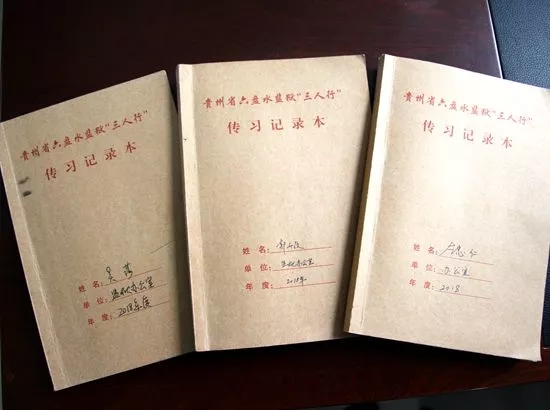 贵州省六盘水监狱“三人行”
传习记录本
姓名：吴
单位：监狱办公室
年度：2018年度
贵州省六盘水监狱“三人行”
传习记录本
姓名：
单位：监狱办公室
年度：2018年
贵州省六盘水监狱“三人行”
传习记录本
姓名：
单位：办公室
年度：2018